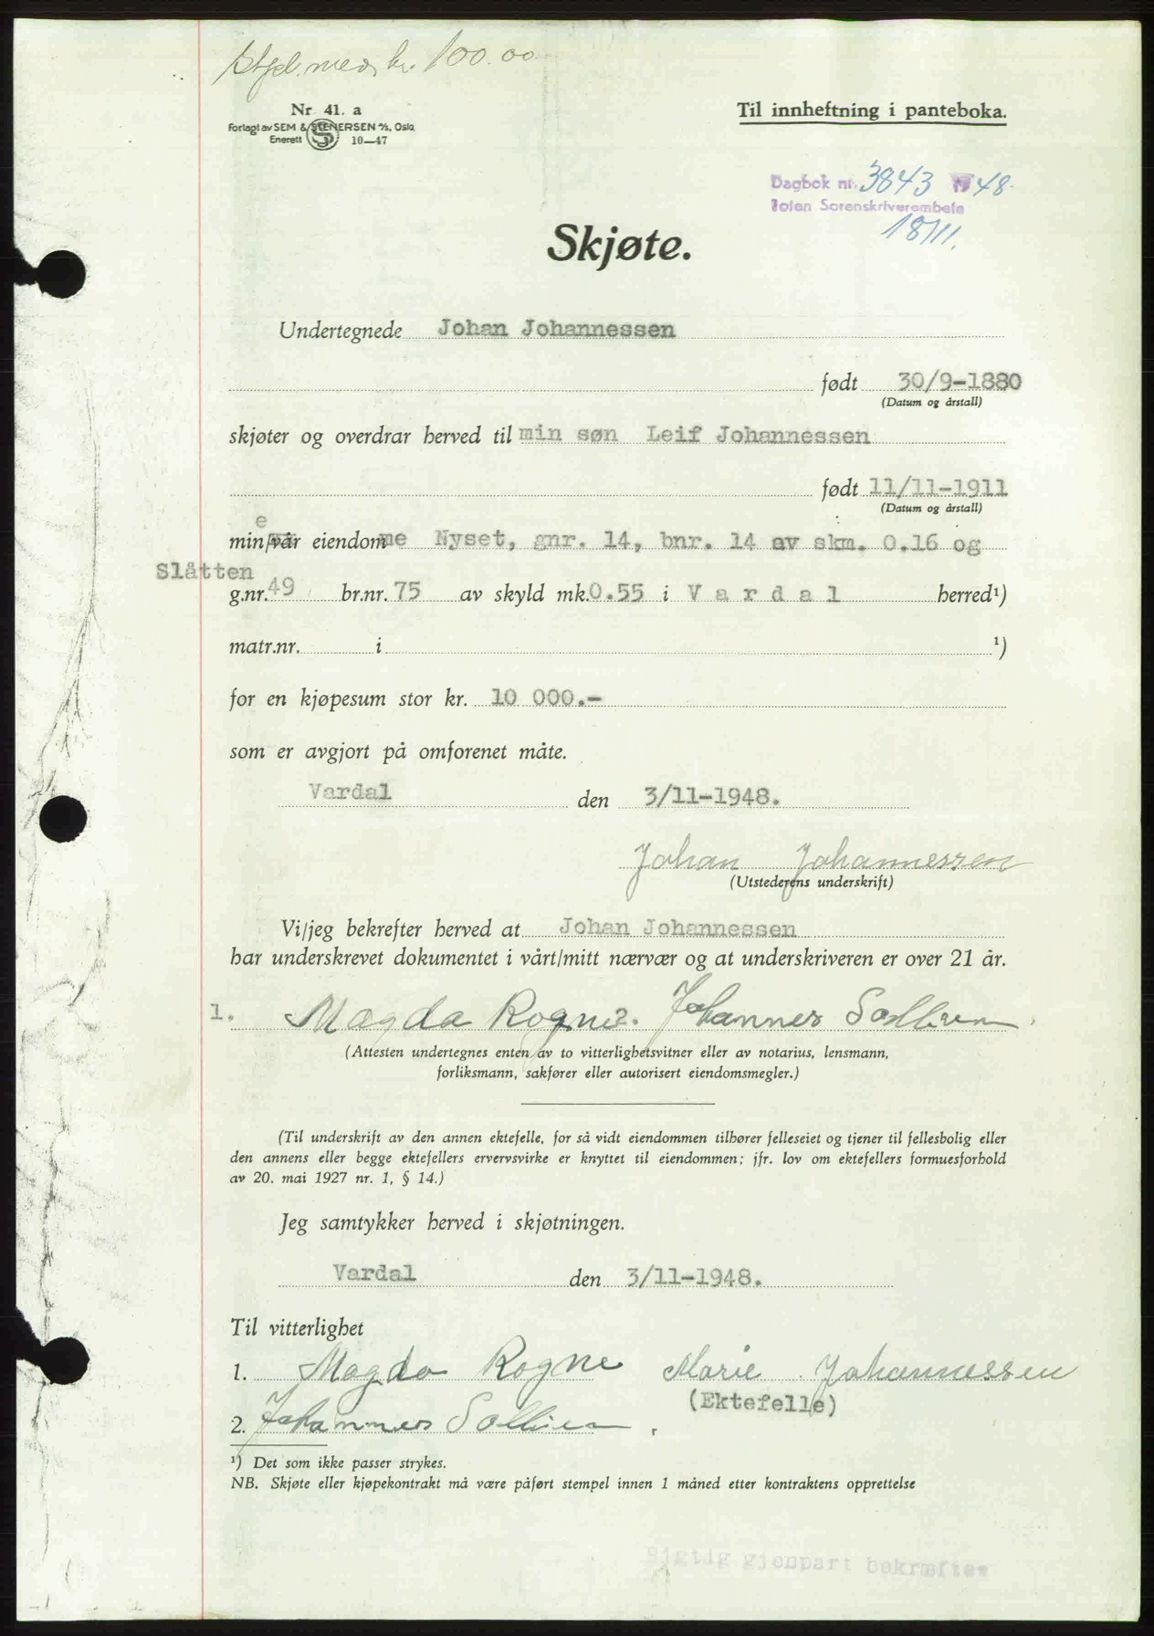 Stpl. med kr. 100.00
Nr. 41. a
Forlagt av SEM & STENERSEN A/S, Oslo
Enerett 10—47
Til innheftning i panteboka.
Dagbok nr. 3843 19 48.
Toten Sorenskriverembete
18/11.
Skjøte.
Undertegnede Johan Johannessen
født 30/9-1880
(Datum og årstall)
skjøter og overdrar herved til min søn Leif Johannessen
født 11/11-1911
(Datum og årstall)
e
min/vår eiendomme Nyset, gnr. 14, bnr. 14 av skm. 0.16 og
Slåtten
g.nr. 49 br.nr. 75 av skyld mk. 0.55 i Vardal herred¹)
matr.nr. i ¹)
for en kjøpesum stor kr. 10 000.-
som er avgjort på omforenet måte.
Vardal den 3/11-1948.
Johan Johannessen
(Utstederens underskrift)
Vi/jeg bekrefter herved at Johan Johannessen
har underskrevet dokumentet i vårt/mitt nærvær og at underskriveren er over 21 år.
1. Magda Rogne 2. Johannes Sollien
(Attesten undertegnes enten av to vitterlighetsvitner eller av notarius, lensmann,
forliksmann, sakfører eller autorisert eiendomsmegler.)
(Til underskrift av den annen ektefelle, for så vidt eiendommen tilhører felleseiet og tjener til fellesbolig eller
den annens eller begge ektefellers ervervsvirke er knyttet til eiendommen; jfr. lov om ektefellers formuesforhold
av 20. mai 1927 nr. 1, § 14.)
Jeg samtykker herved i skjøtningen.
Vardal den 3/11-1948.
Til vitterlighet
1. Magda Rogne Marie Johannessen
(Ektefelle)
2. Johannes Sollien.
¹) Det som ikke passer strykes.
NB. Skjøte eller kjøpekontrakt må være påført stempel innen 1 måned etter kontraktens opprettelse
Rigtig gjenpart bekræftes